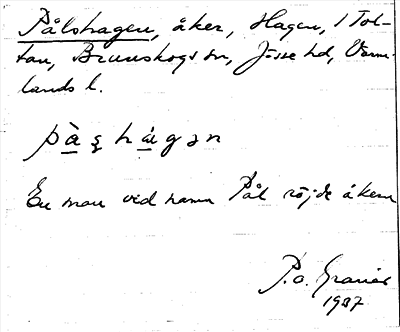 Pålshagen, åker, Hagen, 1 Tol-
tan, Brunskogs sn, Jösse hd, Värm-
lands l.
pàʂhágən
En man vid namn Pål röjde åkern
P.O. Granér
1937